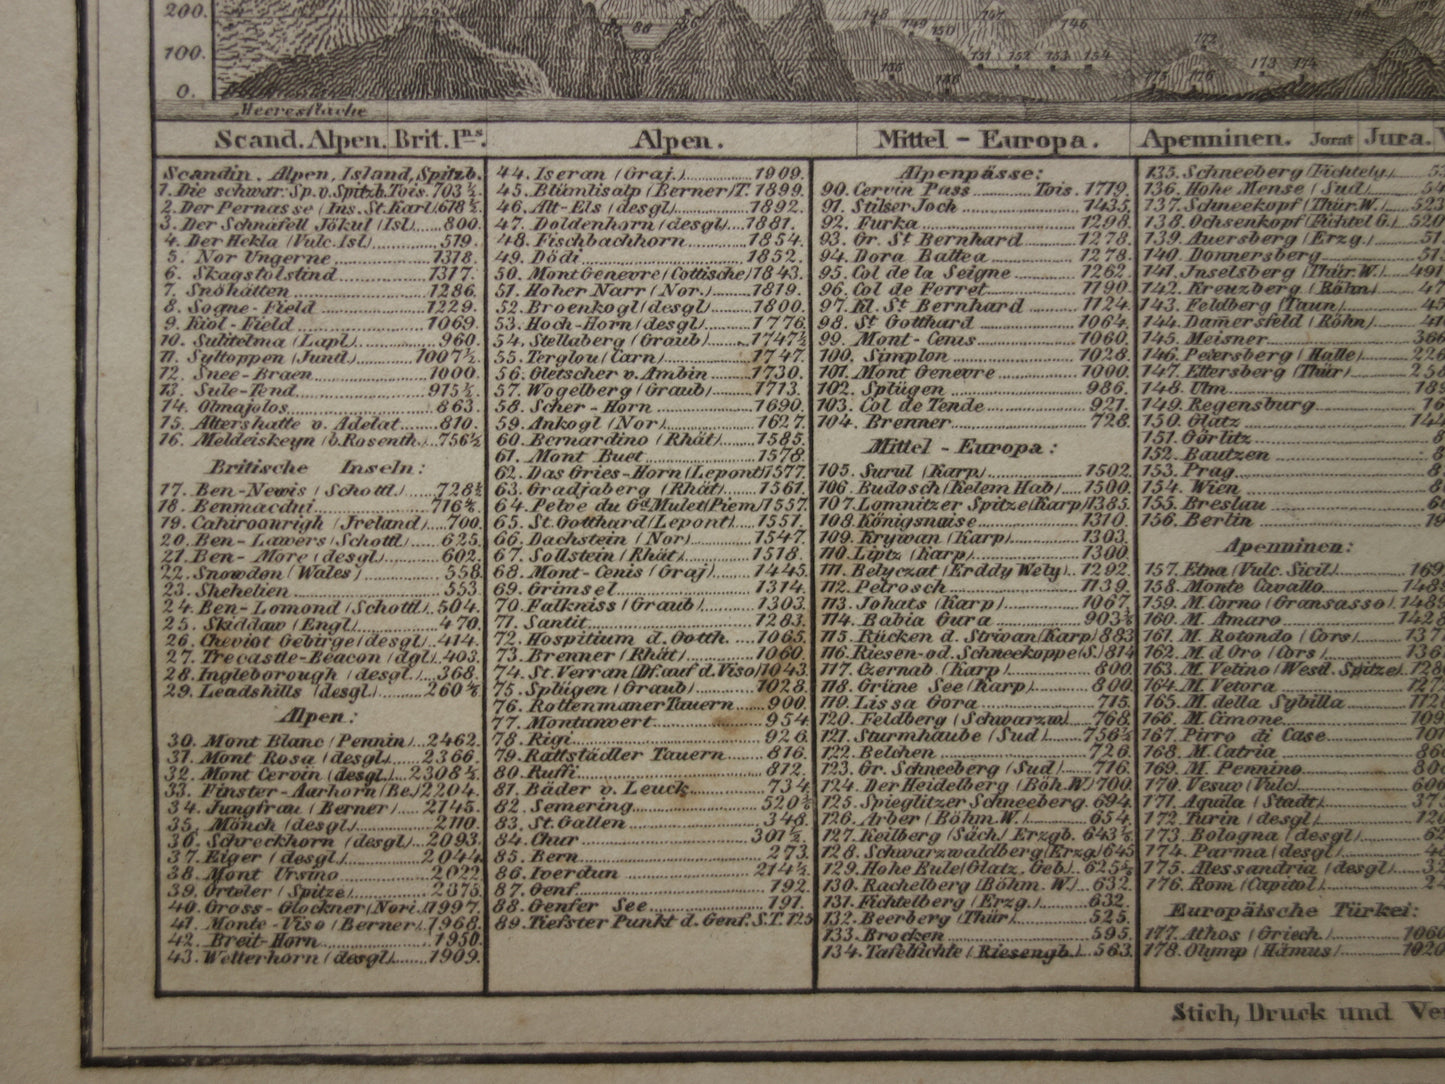 200.
100.
0.
Meeresfläche
Scand. Alpen. Brit. Ins.
Scandin. Alpen, Island, Spitzb.
1. Die schwar. Sp. v. Spitzb. Tois. 703½
2. Der Pernasse (Ins. St. Karl) 618½
3. Der Schnäfell Jökul (Isl.) 800.
4. Der Hekla (Vulc. Isl) 519.
5. Nor Ungerne 1318.
6. Skagstolstind 1317.
7. Snöhätten 1286.
8. Sogne-Field 1229.
9. Kiol-Field 1069.
10. Sulitelma (Lapl.) 960.
11. Syltoppen (Jumtl) 1007½.
12. Snee-Braen 1000.
13. Sule-Tend 915½.
14. Olmajolos 863.
15. Altershatte v. Adelat 810.
16. Meldeiskeyn (b. Rosenth.) 756½
Britische Inseln:
17. Ben-Newis (Schottl.) 728½
18. Benmacdui 716⅔
19. Cahiroonrigh (Jreland) 700.
20. Ben-Lawers (Schottl) 625.
21. Ben-More (desgl.) 602.
22. Snowden (Wales) 558
23. Shehelien 553.
24. Ben-Lomond (Schottl.) 504.
25. Skiddaw (Engl) 470.
26. Cheviot Gebirge (desgl.) 414.
27. Trecastle-Beacon (dgl.) 403.
28. Ingleborough (desgl.) 368.
29. Leadshills (desgl) 260⅚
Alpen:
30. Mont Blanc (Pennin) 2462.
31. Mont Rosa (desgl) 2366.
32. Mont Cervin (desgl.) 2308½
33. Finster-Aarhorn (Be.) 2204.
34. Jungfrau (Berner) 2145.
35. Mönch (desgl) 2110.
36. Schreckhorn (desgl) 2093.
37. Eiger (desgl.) 2044
38. Mont Ursino 2022
39. Orteler (Spitze)
40. Gross-Glockner (Nori.) 1997.
41. Monte-Viso (Berner.) 1968.
42. Breit-Horn 1950.
43. Wetterhorn (desgl.) 1909.
Alpen.
44. Iseran (Graj.) 1909.
45. Blümlisalp (Berner) T. 1899.
46. Alt-Els (desgl) 1892.
47. Doldenhorn (desgl) 1881.
48. Fischbachhorn 1854.
49. Dödi 1852.
50. Mont Genevre (Cottische) 1843.
51. Hoher Narr (Nor.) 1819.
52. Broenkogl (desgl) 1800.
53. Hoch-Horn (desgl) 1776
54. Stellaberg (Graub) 1747½
55. Terglou (Carn) 1747.
56. Gletscher v. Ambin 1730.
57. Wogelberg (Graub) 1713.
58. Scher-Horn 1690.
59. Ankogl (Nor) 1627
60. Bernardino (Rhät) 1585.
61. Mont Buet 1578.
62. Das Gries-Horn (Lepont) 1577.
63. Gradjaberg (Rhät) 1561.
64. Pelve du Gd. Mulet (Piem) 1557
65. St. Gotthard (Lepont) 1551.
66. Dachstein (Nor) 1547.
67. Sollstein (Rhät) 1518.
68. Mont-Cenis (Graj) 1445.
69. Grimsel 1314.
70. Falkniss (Graub) 1303.
71. Santit 1283.
72. Hospitium d. Gotth. 1065.
73. Brenner (Rhät) 1060.
74. St. Verran (Df. auf d. Viso) 1043
75. Splügen (Graub) 1028.
76. Rottenmaner Tauern 900.
77. Montanvert 954
78. Rigi 926.
79. Rattstädler Tauern 816.
80. Ruffi 812.
81. Bäder v. Leuck 734
82. Semering 520½
83. St. Gallen 348.
84. Chur 301½.
85. Bern 273.
86. Iverdun 214½
87. Genf 192.
88. Genfer See 191.
89. Tiefster Punkt d. Genf. S. T. 125
Mittel-Europa.
Alpenpässe:
90. Cervin Pass Tois. 1719.
91. Stilser Joch 1435.
92. Furka 1298.
93. Gr. St. Bernhard 1278.
94. Dora Baltea 1278.
95. Col de la Seigne 1262.
96. Col de Ferret 1190.
97. Kl. St. Bernhard 1124.
98. St. Gotthard 1064.
99. Mont-Cenis 1060.
100. Simplon 1028.
101. Mont Genevre 1000.
102. Splügen 986.
103. Col de Tende 921.
104. Brenner 728.
Mittel-Europa:
105. Surul (Karp) 1502
106. Budosch (Kelem Hab) 1500.
107. Lomnitzer Spitze (Karp) 1385.
108. Königsnaise 1310.
109. Krywan (Karp.) 1303.
110. Liptz (Karp) 1300.
111. Belyczat (Erddy Wely) 1292.
112. Petrosch 1139.
113. Johats (Karp) 1067
114. Babia Gura 903½
115. Rücken d. Striwan (Karp) 883
116. Riesen-od. Schneekoppe (S.) 814
117. Czernab (Karp.) 800.
118. Grüne See (Karp) 800.
119. Lissa Gora 715.
120. Feldberg (Schwarzw) 768.
121. Sturmhaube (Sud) 756½
122. Belchen 726.
123. Gr. Schneeberg (Sud) 716.
124. Der Heidelberg (Böh. W.) 700.
125. Spieglitzer Schneeberg. 694.
126. Arber (Böhm. W.) 654.
127. Keilberg (Säch.) Erzgb. 643½
128. Schwarzwaldberg (Erzg.) 645
129. Hohe Eule (Glatz. Geb.) 625½
130. Rachelberg (Böhm. W.) 632.
131. Fichtelberg (Erzg.) 632.
132. Beerberg (Thür) 525.
133. Brocken 595.
134. Tafelfichte (Riesengb.) 563.
Apenninen. Jorat Jura.
135. Schneeberg (Fichtelg)
136. Hohe Mense (Sud)
137. Schneekopf (Thür. W.) 523
138. Ochsenkopf (Fichtel G.) 520
139. Auersberg (Erzg.)
140. Donnersberg
141. Inselsberg (Thür. W.) 491
142. Kreuzberg (Röhn)
143. Feldberg (Taun)
144. Damersfeld (Röhn)
145. Meisner 366
146. Petersberg (Halle) 226
147. Ettersberg (Thür) 258
148. Ulm
149. Regensburg
150. Glatz 144
151. Görlitz
152. Bautzen
153. Prag
154. Wien
155. Breslau
156. Berlin
Apenninen:
157. Etna (Vulc. Sicil)
158. Monte Cavallo
159. M. Corno (Gransasso)
160. M. Amaro 1428
161. M. Rotondo (Cors)
162. M. d Oro (Cors)
163. M. Vetino (Westl. Spitze)
164. M. Vetora
165. M. della Sybilla
166. M. Cimone
167. Pirro di Case
168. M. Catria
169. M. Pennino
170. Vesuv (Vulc)
171. Aquila (Stadt)
172. Turin (desgl)
173. Bologna (desgl)
174. Parma (desgl)
175. Alessandria (desgl)
176. Rom (Capitol)
Europäische Türkei:
177. Athos (Griech.) 1060
178. Olymp (Hämus) 1020
Stich, Druck und